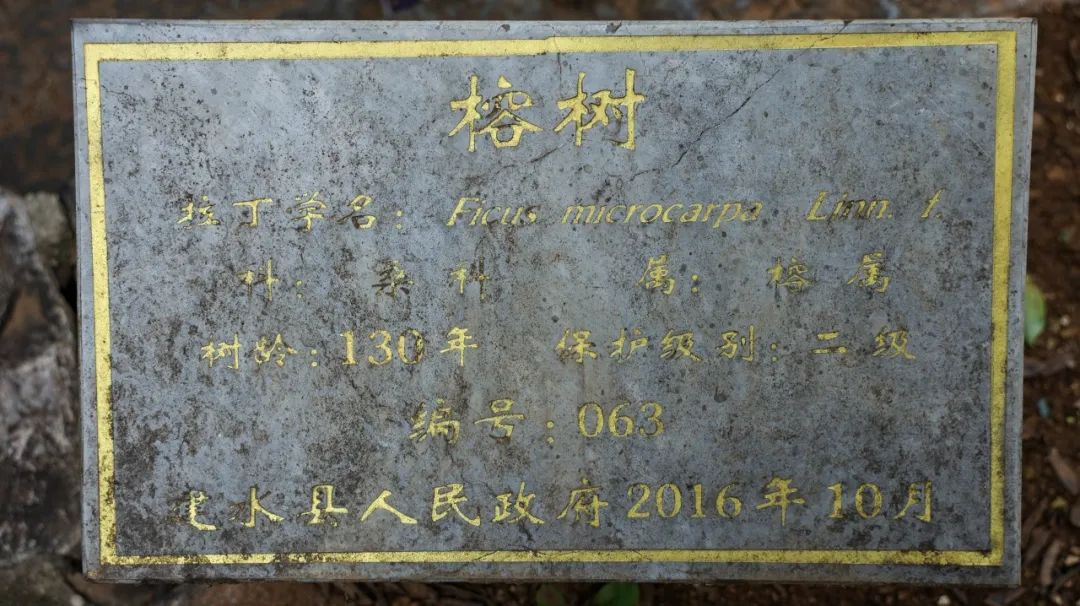 榕树
拉丁学名: Ficus microcarpa Linn. f.
科: 桑科 属: 榕属
树龄: 130年 保护级别: 二级
编号: 063
建水县人民政府2016年10月